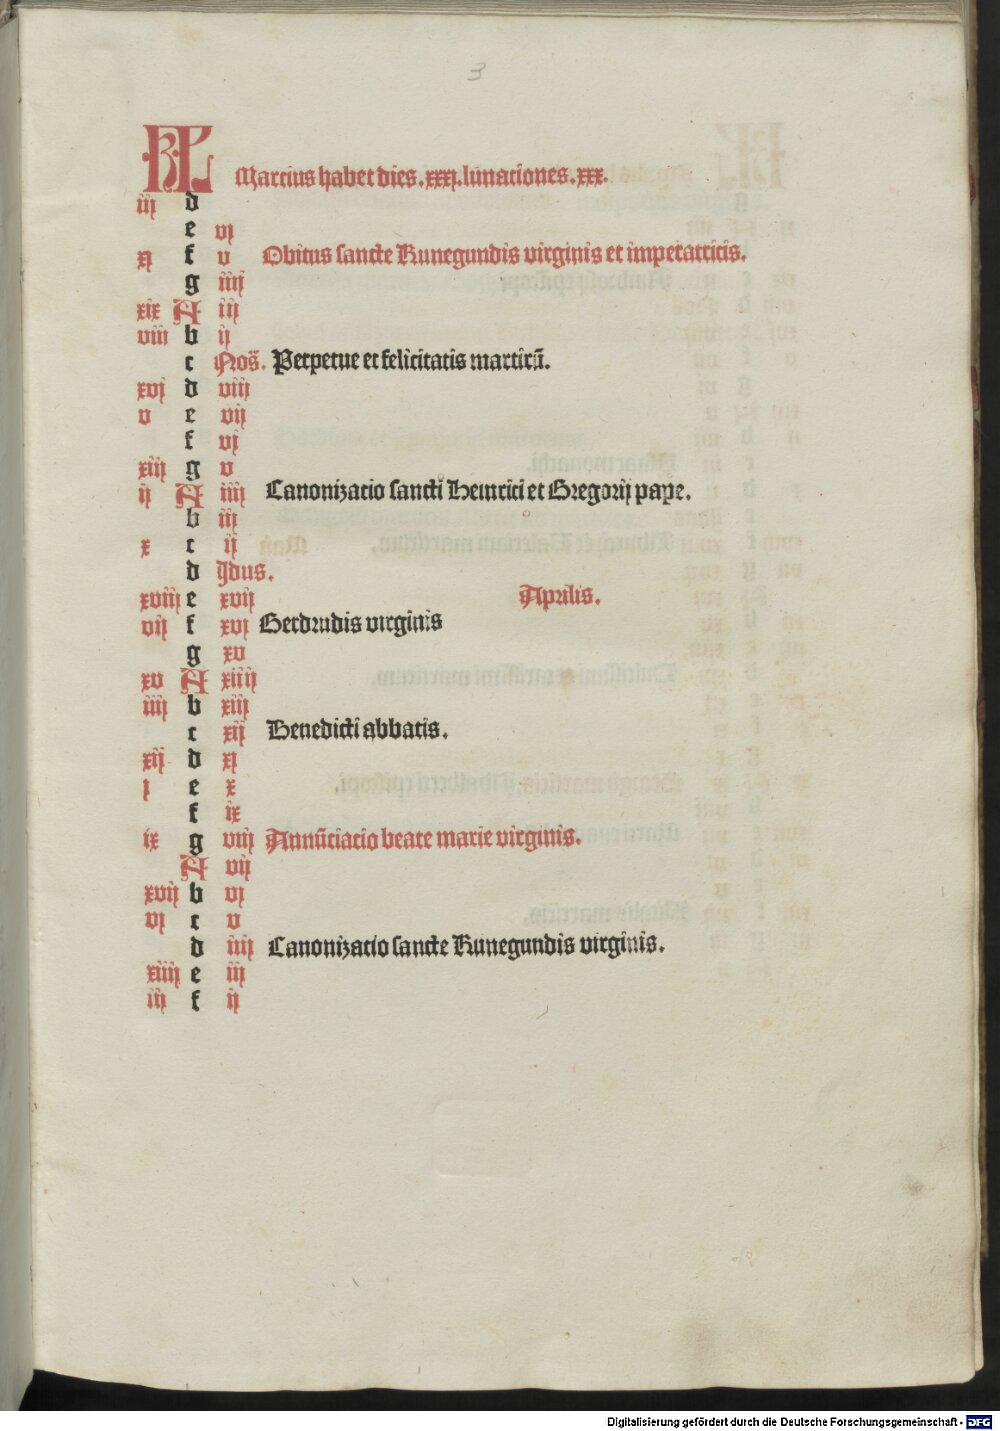 3
KL Marcius habet dies .xxxj. lunationes .xxx.
iij d
e vj
xj f v Obitus sancte Kunegundis virginis et imperatricis.
g iiij
xix A iij
viij b ij
c Noñ. Perpetue et felicitatis martirū.
xvj d viij
v e vij
f vj
xiij g v
ij A iiij Canonizacio sancti Heinrici et Gregorij pape.
b iij
x c ij
d Jdus.
xviij e xvij Aprilis.
vij f xvj Gerdrudis virginis
g xv
xv A xiiij
iiij b xiij
c xij Benedicti abbatis.
xij d xj
j e x
f ix
ix g viij Annūciacio beate marie virginis.
A vij
xvij b vj
vj c v
d iiij Canonizacio sancte Kunegundis virginis.
xiiij e iij
iij f ij
Digitalisierung gefördert durch die Deutsche Forschungsgemeinschaft - DFG